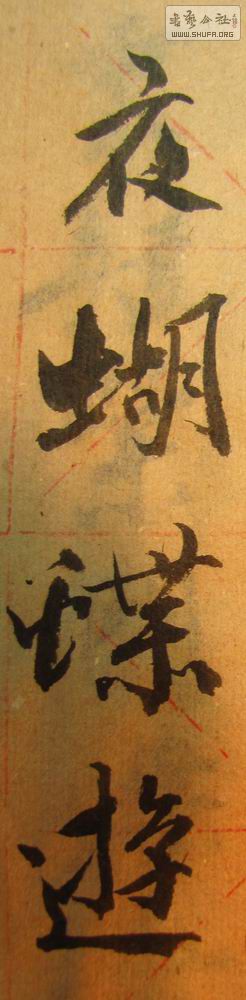 书艺公社
WWW.SHUFA.ORG
夜蝴蝶遊